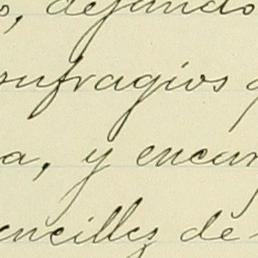 , dejando
sufragios
a, y encar
encillez de-